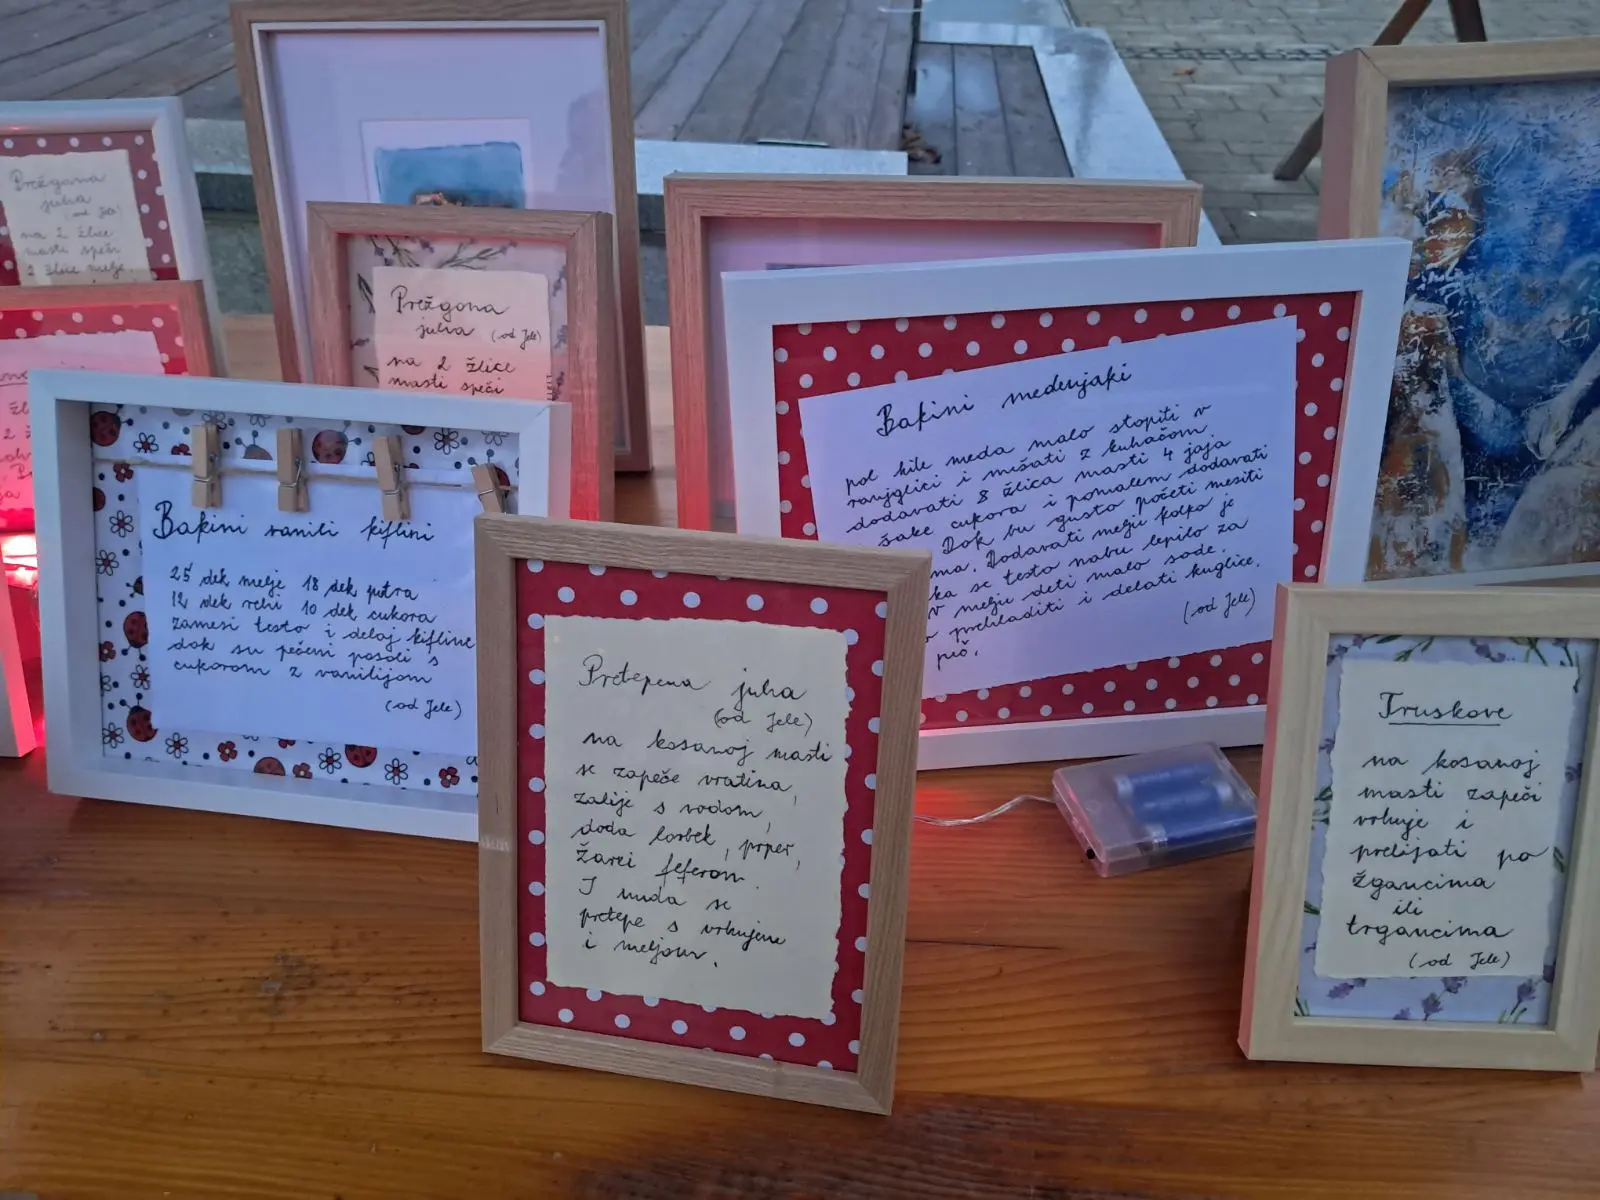 Prežgana
juha
(od Jele)
na 2 žlice
masti speči
2 žlice melje.
Prežgana
juha (od Jele)
na 2 žlice
masti speči
Bakini vanili kiflini
25 dek melje 18 dek putra
12 dek rebi 10 dek cukora
zamesi testo i delaj kifline
dok su pečeni posoli s
cukorom z vanilijom
(od Jele)
Bakini medenjaki
pol kile meda malo stopiti v
ranjglici i mišati z kuhačom
dodavati 8 žlica masti 4 jaja
šake cukora i pomalem dodavati
Dok bu gusto početi mesiti
ma. Dodavati melju kolko je
ka se testo nabu lepilo za
v melju deti malo sode.
prehladiti i delati kuglice.
peč.
(od Jele)
Pretepena juha
(od Jele)
na kosanoj masti
se zapeče vratina,
zalije s vodom,
doda lorbek, prper,
žarci feferon.
I unda se
pretepe s vrhnjem
i meljom.
Truskove
na kosanoj
masti zapeči
vrhnje i
prelijati po
žgancima
ili
trgancima
(od Jele)